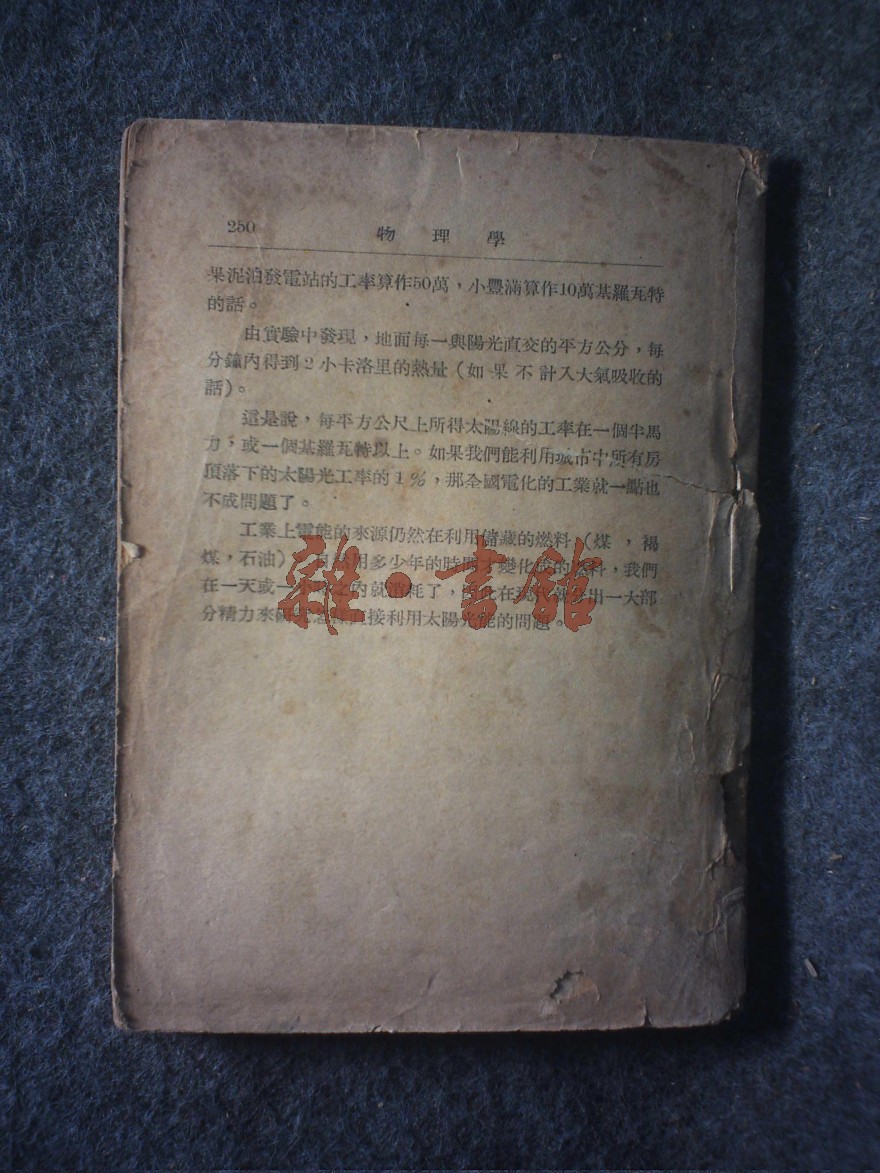 250
物理學
果泥泊發電站的工率算作50萬，小豐滿算作10萬基羅瓦特
的話。
由實驗中發現，地面每一與陽光直交的平方公分，每
分鐘內得到2小卡洛里的熱量（如果不計入大氣吸收的
話）。
這是說，每平方公尺上所得太陽線的工率在一個半馬
力，或一個基羅瓦特以上。如果我們能利用城市中所有房
頂落下的太陽光工率的1%，那全國電化的工業就一點也
不成問題了。
工業上電能的來源仍然在利用儲藏的燃料（煤，褐
煤，石油）用多少年的時間才變化成的燃料，我們
在一天或一之內就消耗了，因此在現代就分出一大部
分精力來研究怎樣直接利用太陽光能的問題。
雜·書館